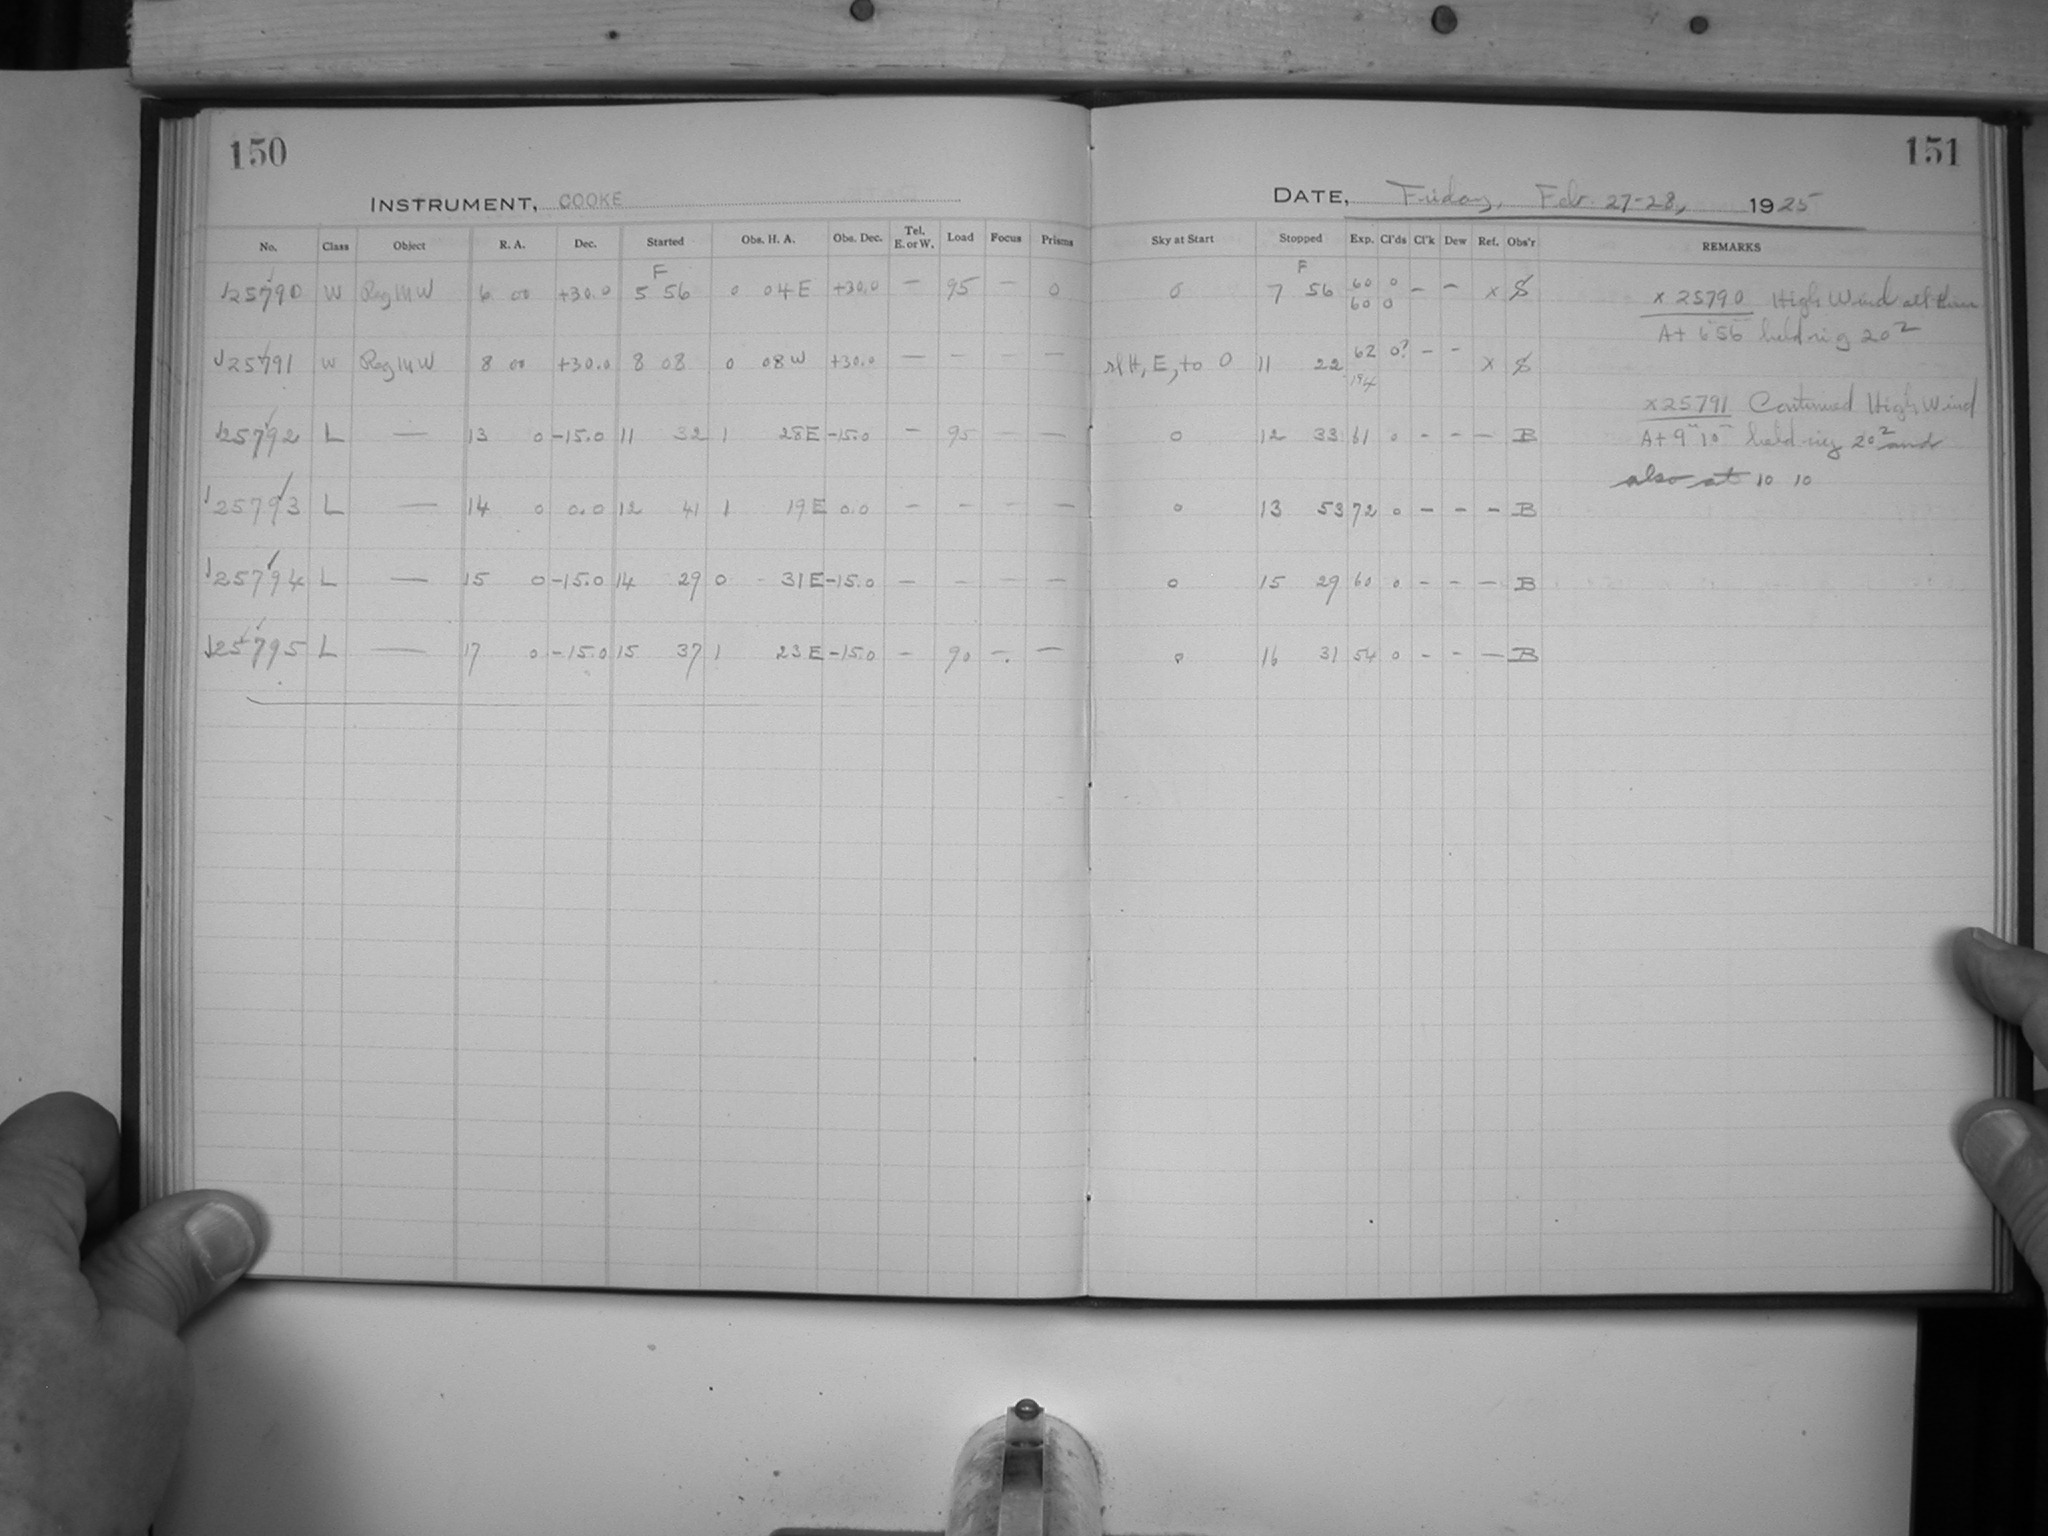 150
INSTRUMENT, COOKE
No. Class Object R. A. Dec. Started Obs. H. A. Obs. Dec. Tel. E. or W. Load Focus Prisms
F
25790 W Reg 14 W 6 00 +30.0 5 56 0 04 E +30.0 — 95 — 0
25791 W Reg 14 W 8 00 +30.0 8 08 0 08 W +30.0 — — — —
25792 L — 13 0 -15.0 11 32 1 28 E -15.0 — 95 — —
25793 L — 14 0 0.0 12 41 1 19 E 0.0 — — — —
25794 L — 15 0 -15.0 14 29 0 31 E -15.0 — — — —
25795 L — 17 0 -15.0 15 37 1 23 E -15.0 — 90 — —
151
DATE, Friday, Feb. 27-28, 1925
Sky at Start Stopped Exp. Cl'ds Cl'k Dew Ref. Obs'r REMARKS
F
0 7 56 60 0 — — x S
60 0
H, E, to 0 11 22 62 0? — — x S
194
0 12 33 61 0 - - — B
0 13 53 72 0 - - - B
0 15 29 60 0 - - — B
0 16 31 54 0 - - — B
x 25790 High Wind all time
At 6 56 held rig 20²
x 25791 Continued High Wind
At 9 10 held rig 20² and
also at 10 10